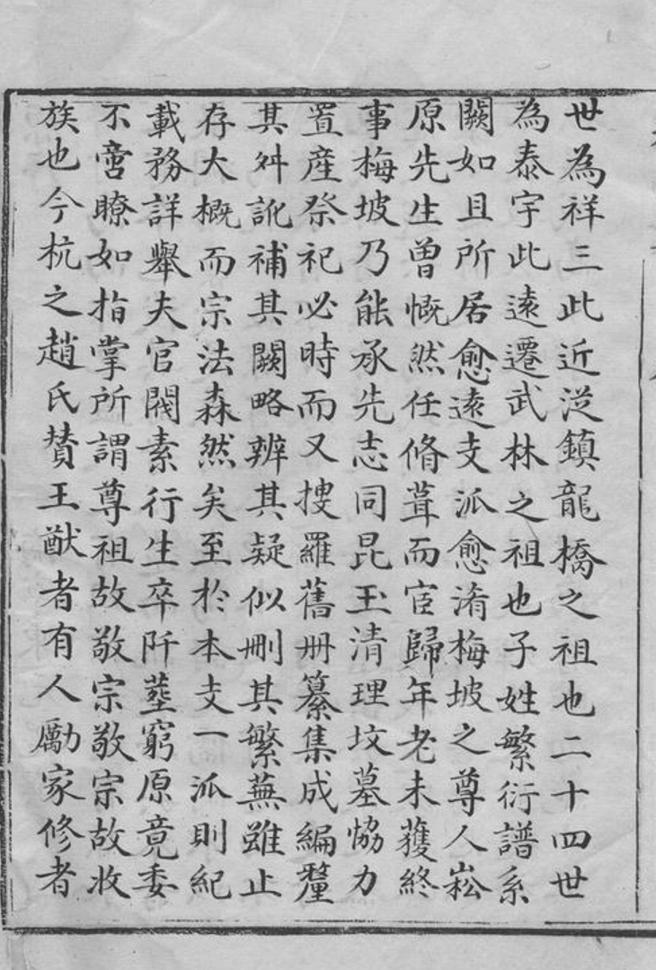 世為祥三此近淫鎮龍橋之祖也二十四世
為泰宇此遠遷武林之祖也子姓繁衍譜系
闕如且所居愈遠支派愈淆梅坡之尊人崧
原先生曾慨然任脩葺而宦歸年老未蒦終
事梅坡乃能承先志同昆玉清理坟墓恊力
置産祭祀必時而又搜羅舊册纂集成編釐
其舛訛補其闕略辨其疑似刪其繁蕪雖止
存大概而宗法森然矣至於本支一派則紀
載務詳舉夫官閥素行生卒阡塋窮原竟委
不啻瞭如指掌所謂尊祖故敬宗敬宗故收
族也今杭之趙氏賛王猷者有人勵家修者